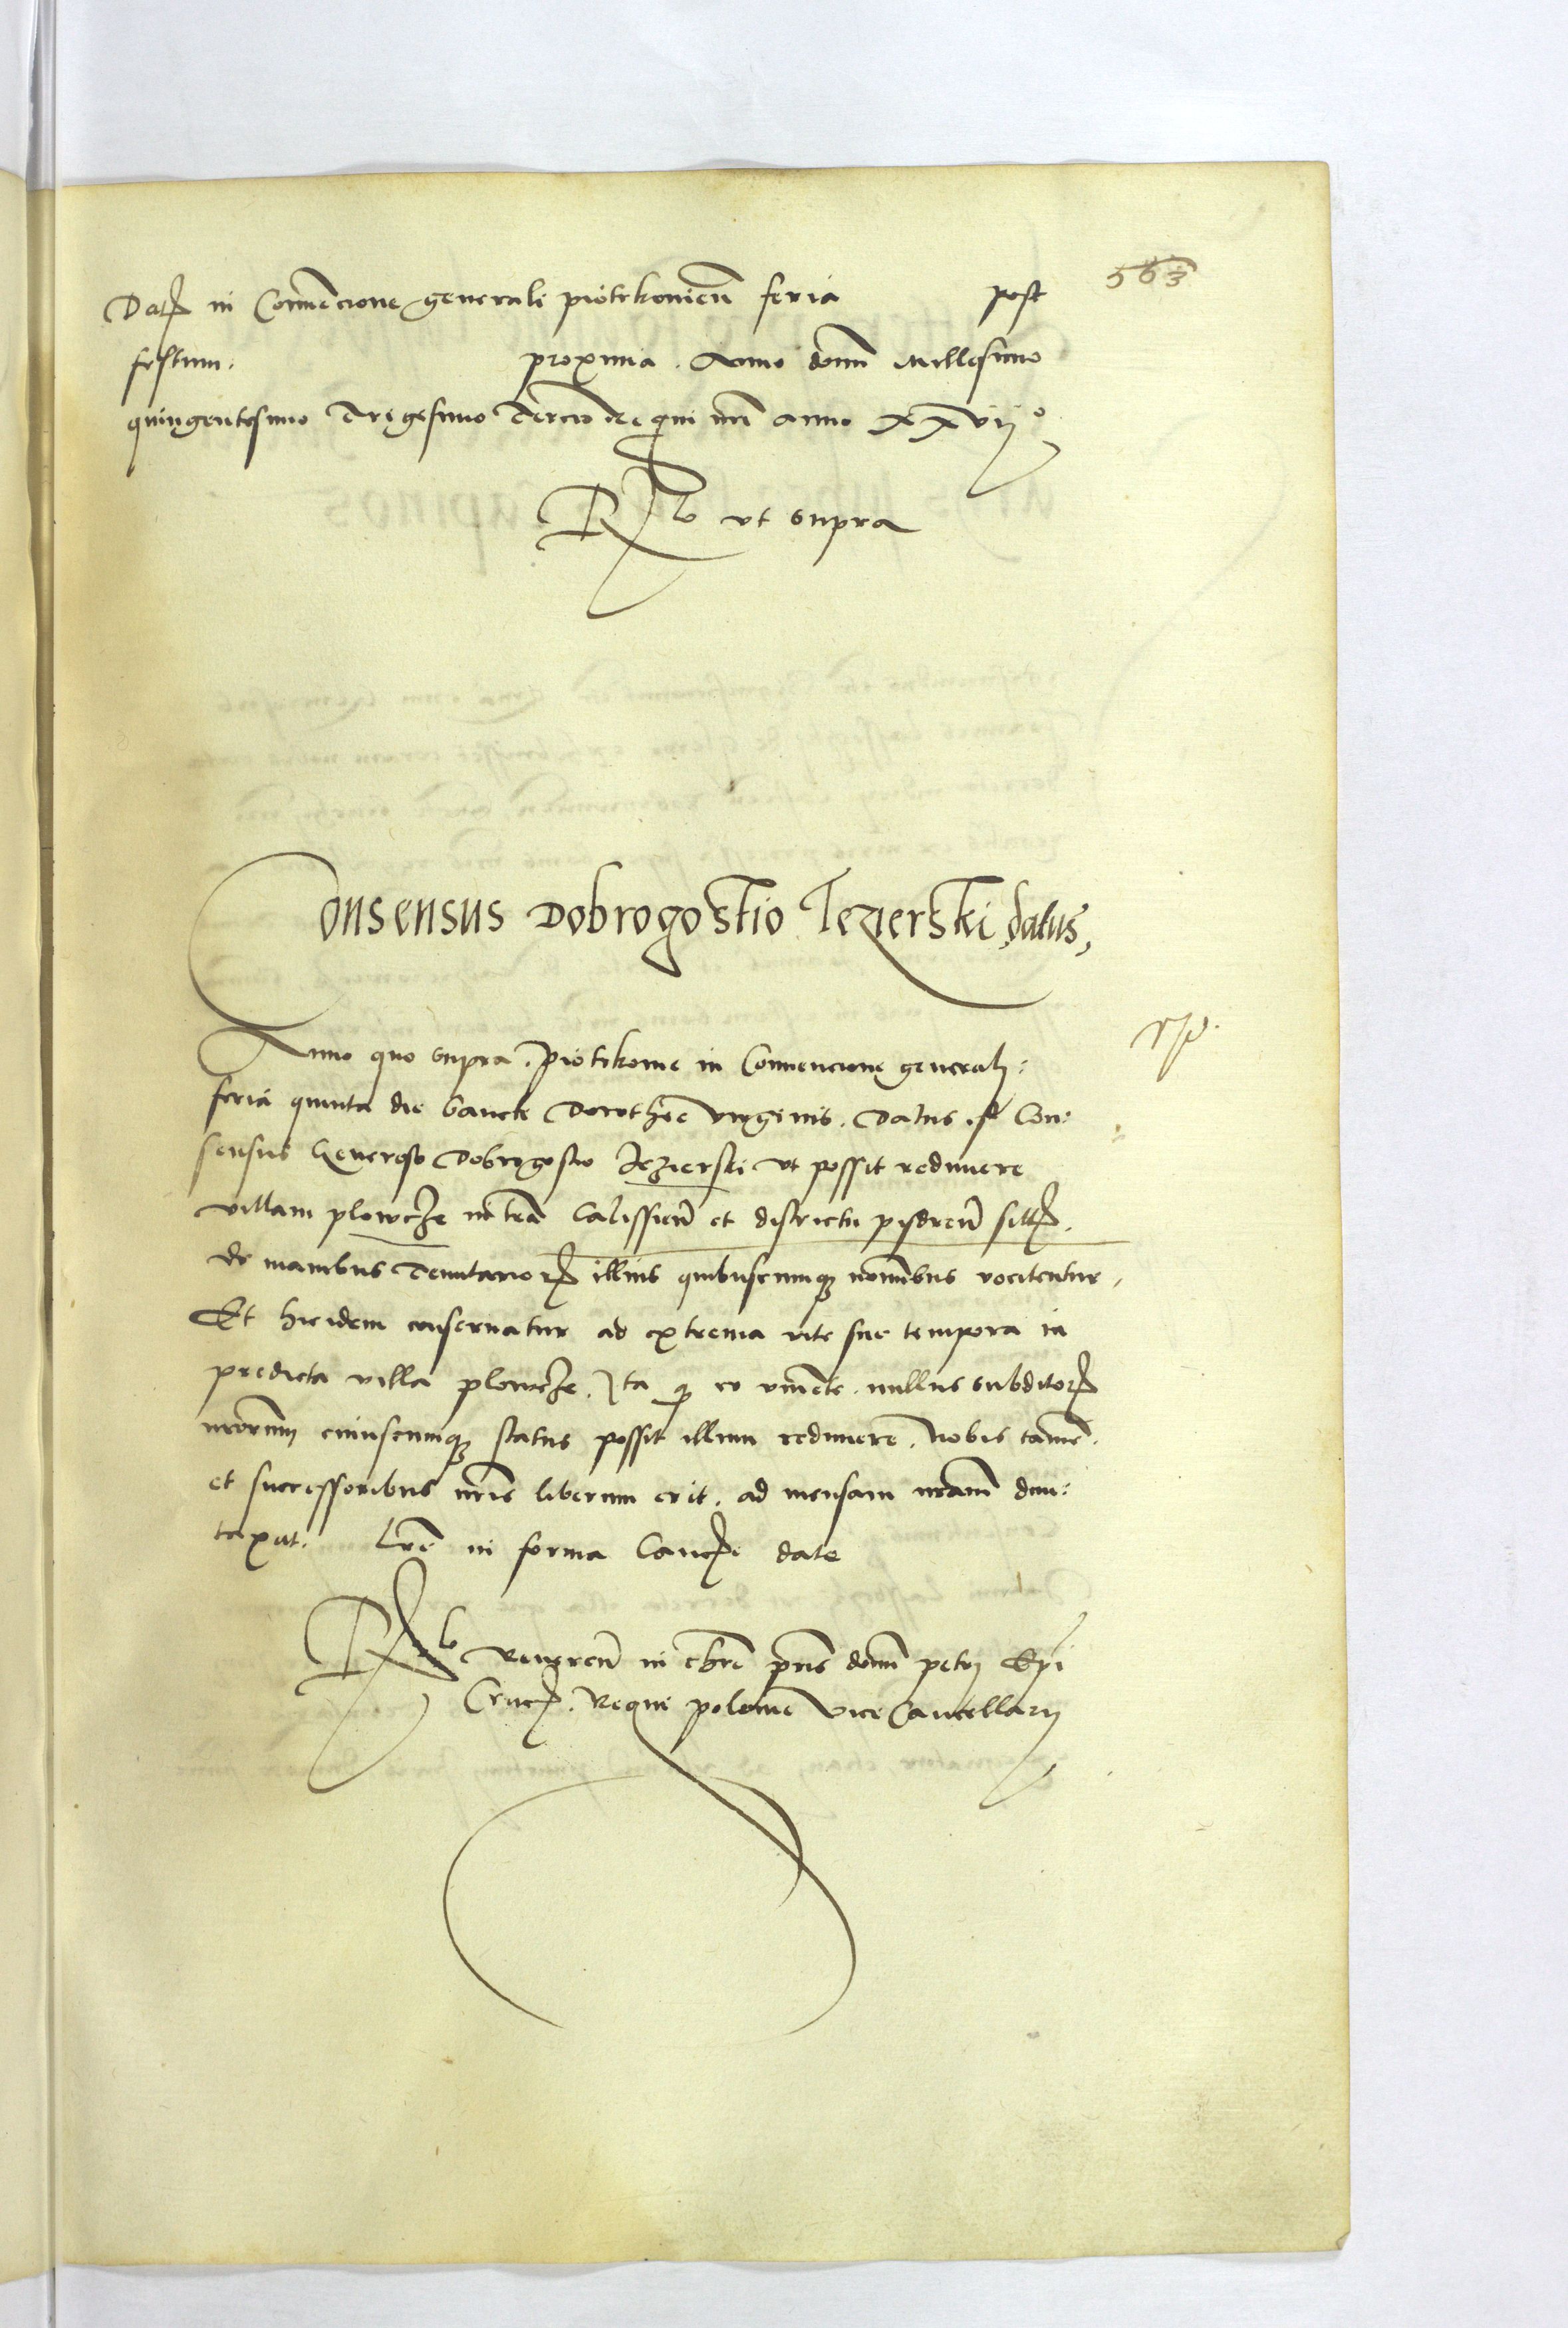 563
Dat in Convencione generali piotrkovien feria post
festum. proxima. Anno domini Millesimo
quingentesimo Trigesimo Tercio Regni nri anno xxvii°
Rlo ut supra
Consensus Dobrogostio Iezierski datus,
Anno quo supra. Piotrkovie in Convencione generali:
feria quinta die Sancte Dorothee virginis. Datus est Con:
sensus Generoso Dobrogostio Iezierski ut possit redimere
villam plowcze in tra Calissien et districtu pisdren sitt.
de manibus Tenutarior illius quibuscumq nominibus vocitentur.
Et hic idem conservatur ad extrema vite sue tempora in
predicta villa plowcze. Ita q eo vivente. nullus subditor
nrorum cuiuscumq status possit illum redimere. Nobis tamen.
et successoribus nris liberum erit. ad mensam nram dun:
taxat. Lre in forma Canc date
Rlo Reveren in chro pris domini petri Epi
Crac. Regni polonie ViceCancellarii